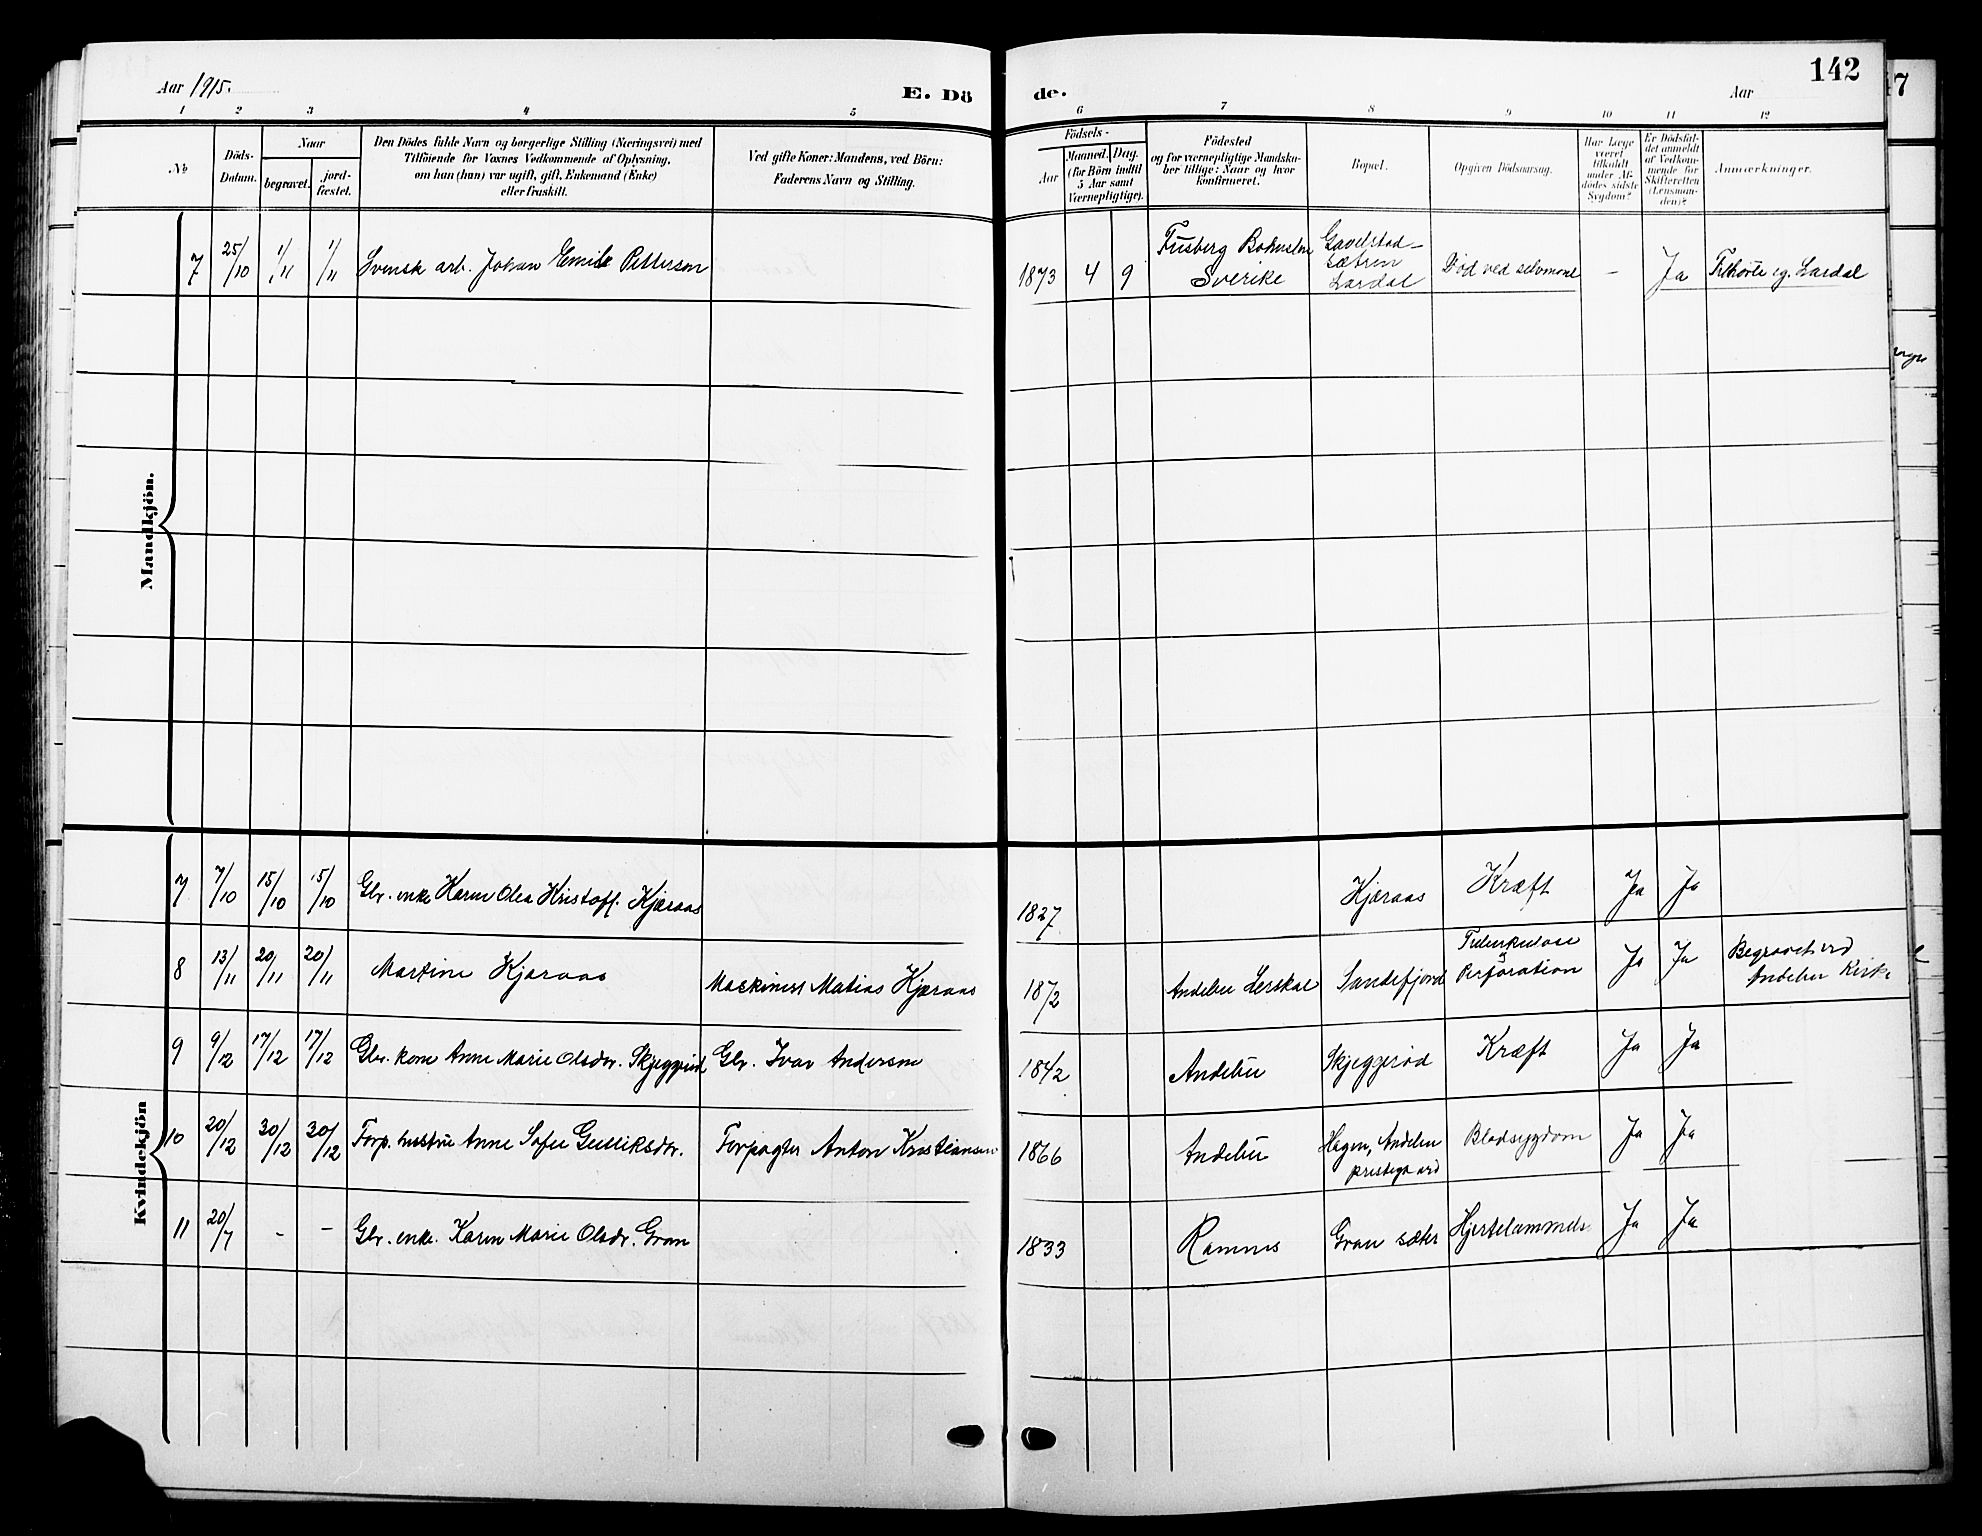 Aar 1915.
E. Dö
de.
Aar
142
1 2 3 4 5 6 7 8 9 10 11 12
No
Döds-
Datum.
Naar
begravet.
jord-
fæstet.
Den Dödes fulde Navn og borgerlige Stilling (Næringsvei) med
Tilföiende for Voxnes Vedkommende af Oplysning,
om han (hun) var ugift, gift, Enkemand (Enke)
eller fraskilt.
Ved gifte Koner: Mandens, ved Börn:
Faderens Navn og Stilling.
Födsels-
Aar
Maaned. Dag.
(for Börn indtil
5 Aar samt
Værnepligtige).
Födested
og for værnepligtige Mandska-
ber tillige: Naar og hvor
konfirmeret.
Bopæl.
Opgiven Dödsaarsag.
Har Læge
været
tilkaldt
under Af-
dödes sidste
Sygdom?
Er Dödsfal-
det anmeldt
af Vedkom-
mende for
Skifteretten
(Lensman-
den)?
Anmærkninger.
Mandkjön.
7 25/10 1/11 1/11 Svensk arb. Johan Emil Petterson 1873 4 9
Sverike
Gavelstad-
Sætren
Lardal
Död ved selvmord - Ja Tilhörte sg. Lardal
Kvindekjön
7 7/10 15/10 15/10 Gbr. enke Karen Olea Kristoff. Kjæraas 1827 Kjæraas Kræft Ja Ja
8 13/11 20/11 20/11 Martine Kjæraas Maskinist Matias Kjæraas 1872 Andebu Herskal Sandefjord
Tuberkulose
Perforation
Ja Ja
Begravet ved
Andebu Kirke
9 9/12 17/12 17/12 Gbr. kone Anne Marie Olsdr. Skjeggerød Gbr. Ivar Anderson 1842 Andebu Skjeggerød Kræft Ja Ja
10 20/12 30/12 30/12 Forp. hustru Anne Sofie Gulliksdr. Forpagter Anton Kristiansen 1866 Andebu
Hagen, Andebu
prestegaard
Blodsygdom Ja Ja
11 20/7 - - Gbr. enke. Karen Marie Olsdr. Gran 1833 Ramnes Gran sæter Hjertelammels- Ja Ja